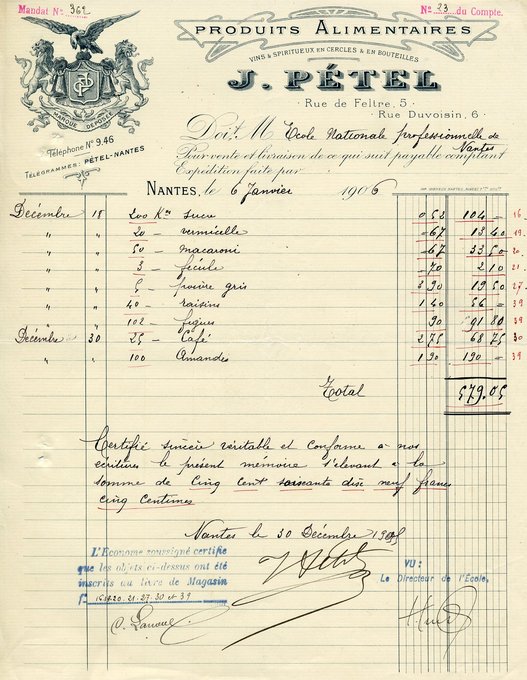 Mandat No. 362
No. 23 du Compte.
PRODUITS ALIMENTAIRES
VINS & SPIRITUEUX EN CERCLES & EN BOUTEILLES
J. PÉTEL
Rue de Feltre, 5
Rue Duvoisin, 6
JP
MARQUE DÉPOSÉE
Téléphone No 9.46
TÉLÉGRAMMES: PÉTEL-NANTES
Doit M Ecole Nationale professionnelle de Nantes
Pour vente et livraison de ce qui suit payable comptant
Expédition faite par
NANTES, le 6 Janvier 1906
Décembre 18 200 Kos Sucre 0 52 104 — 16
" " 20 — vermicelle — 67 13 40 19
" " 50 — macaroni — 67 33 50 20
" " 3 — fécule — 70 2 10 21
" " 5 — poivre gris 3 90 19 50 27
" " 40 — raisins 1 40 56 — 39
" " 102 — figues 90 91 80 39
Décembre 30 25 — Café 2 75 68 75 30
" " 100 Amandes 1 90 190 — 39
Total 579.05
Certifié sincère véritable et conforme à nos
écritures le présent mémoire s'élevant à la
somme de Cinq Cent soixante dix neuf francs
Cinq Centimes
Nantes le 30 Décembre 1905
L'Econome soussigné certifie
que les objets ci-dessus ont été
inscrits au livre de Magasin
fo 16.19.20.21.27.30 et 39
VU:
Le Directeur de l'École,